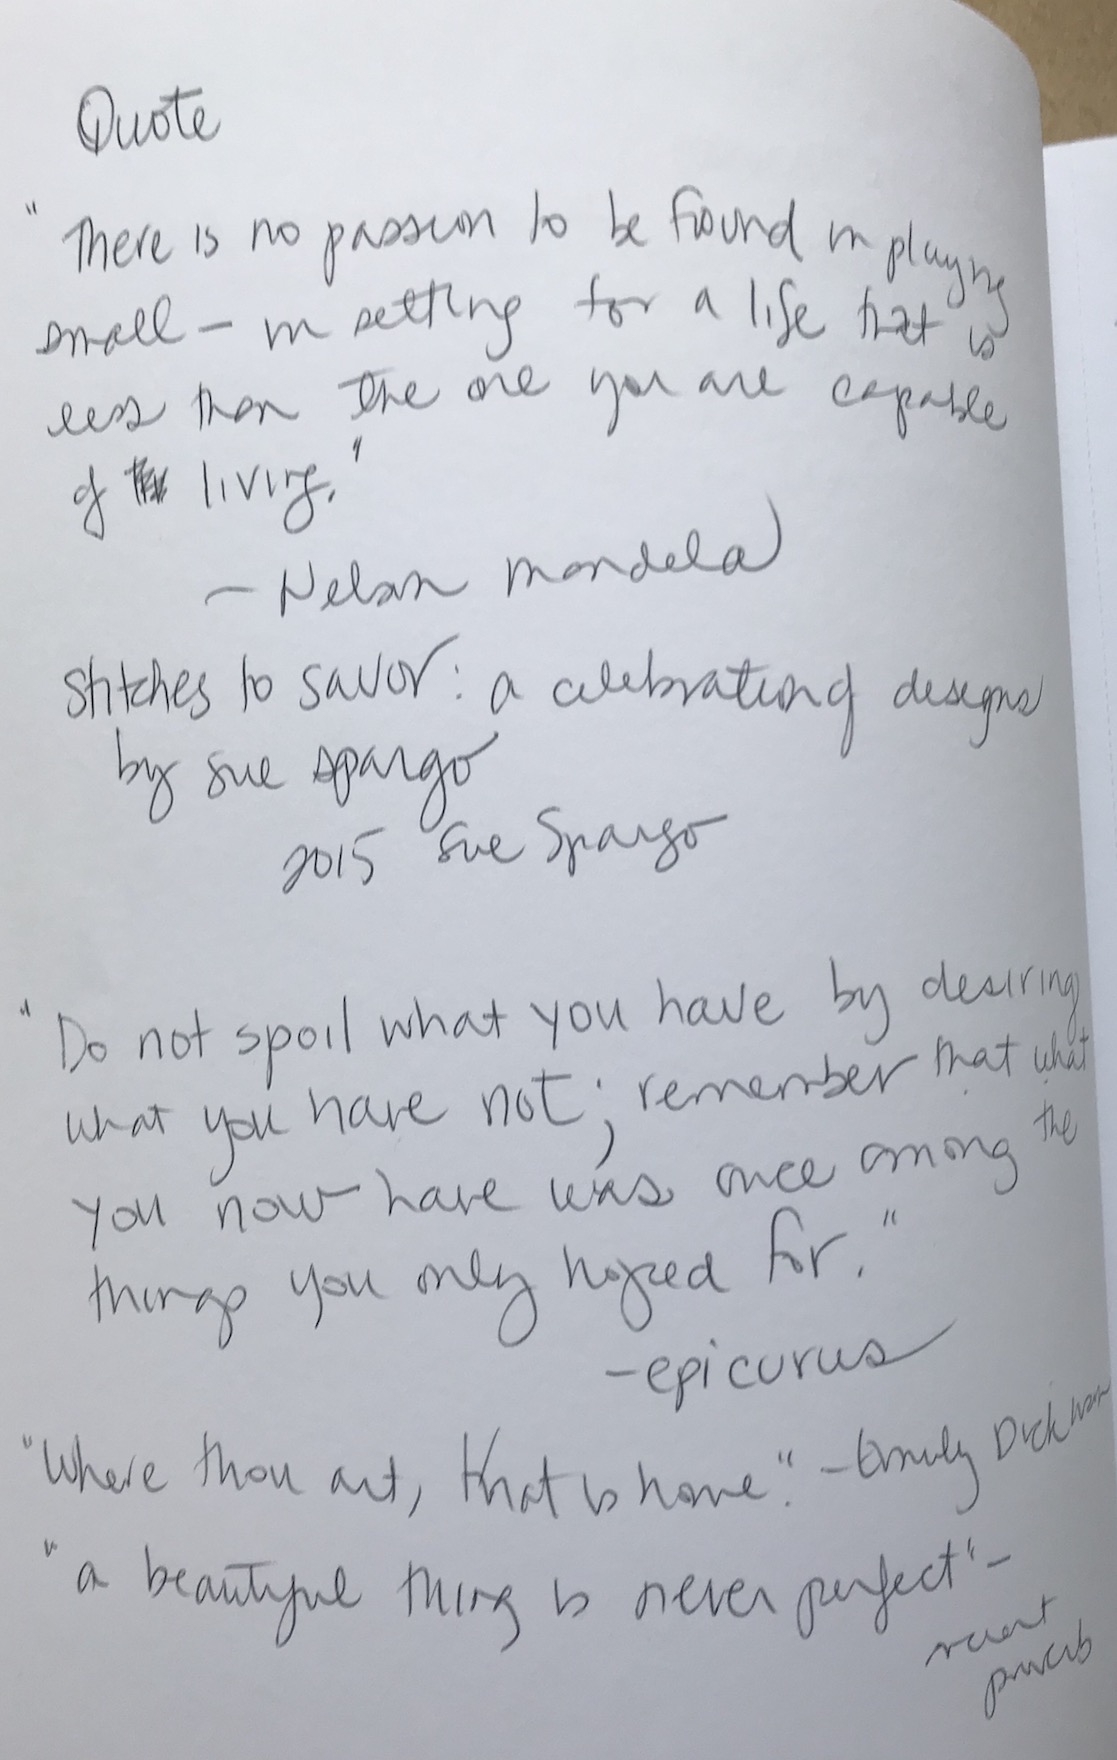 Quote
"There is no passion to be found in playing
small - in setting for a life that is
less than the one you are capable
of living."
- Nelson Mandela
Stitches to savor: a celebrating designs
by Sue Spargo
2015 Sue Spargo
"Do not spoil what you have by desiring
what you have not; remember that what
you now have was once among the
things you only hoped for."
- epicurus
"Where thou art, that is home." - Emily Dickinson
"a beautiful thing is never perfect" -
proverb